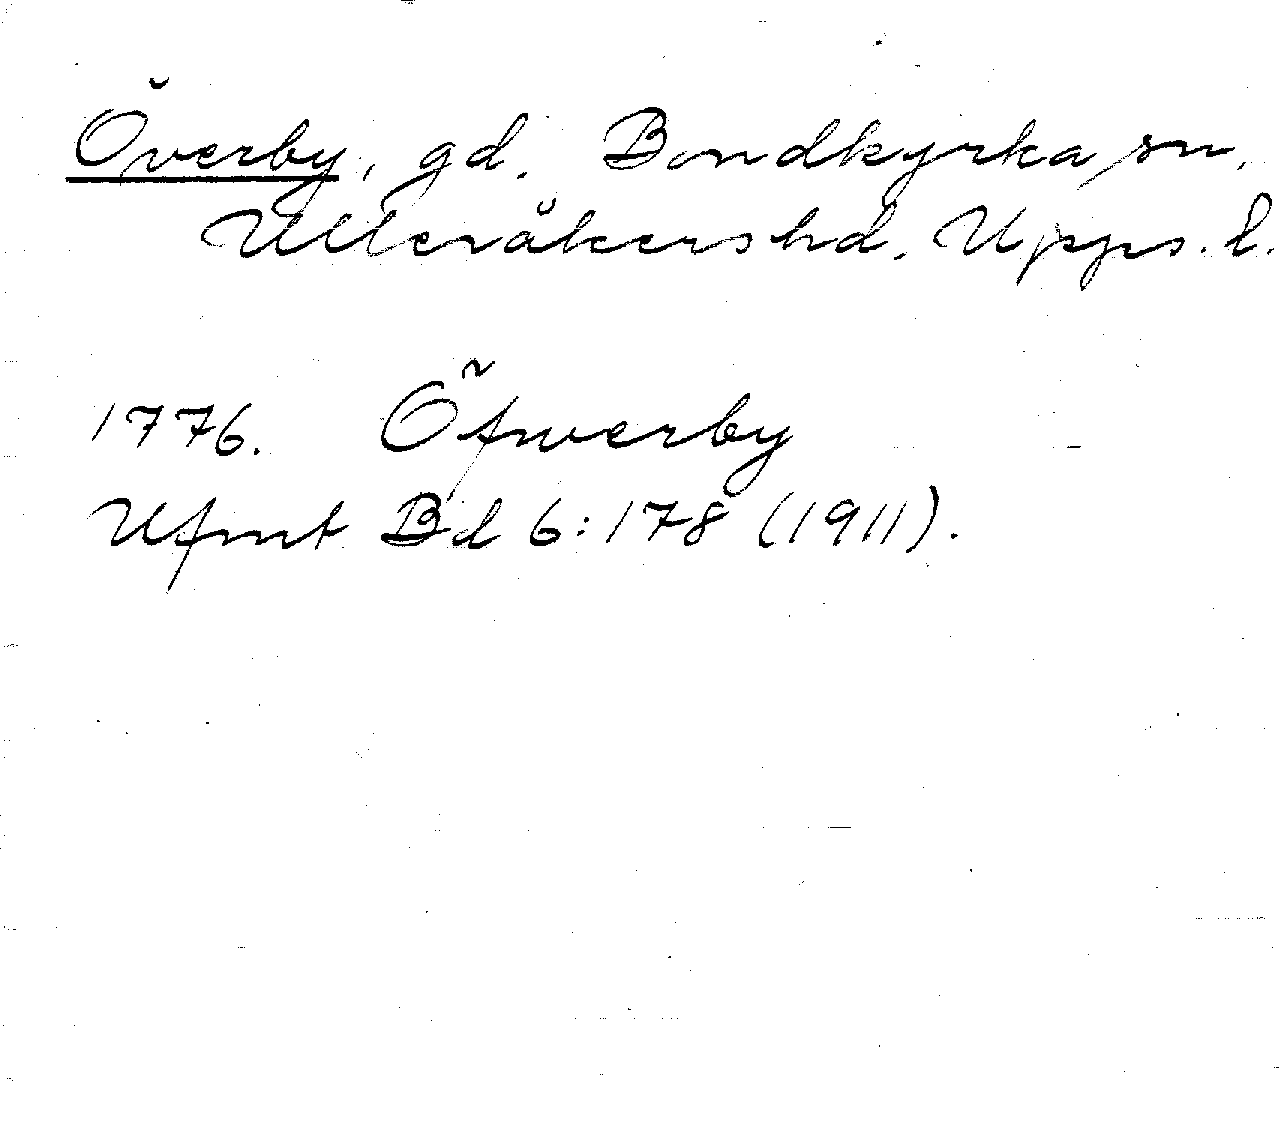 Överby, gd. Bondkyrka sn,
Ulleråkers hd. Upps. l.
1776. Öfwerby
Ufmt Bd 6:178 (1911).